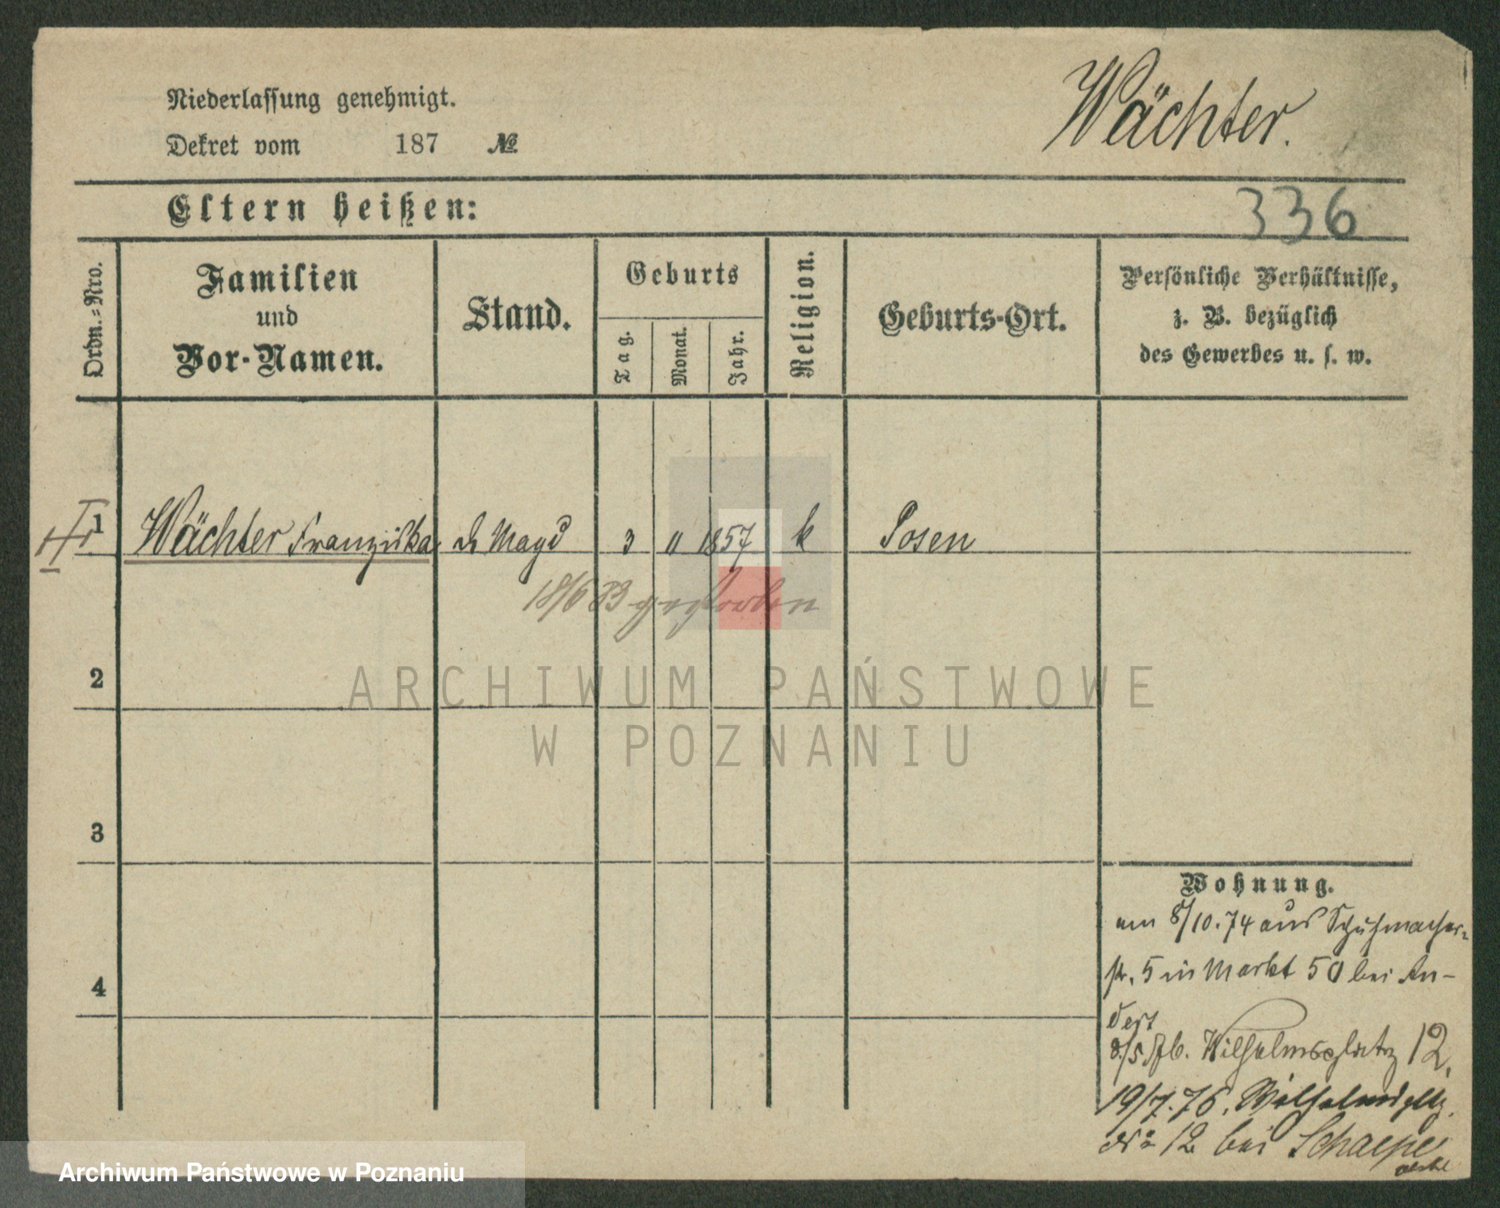 Niederlassung genehmigt.
Dekret vom 187 №
Wächter.
Eltern heißen:
336
Ordn.-Nro.
Familien
und
Vor-Namen.
Stand.
Geburts
Tag.
Monat.
Jahr.
Religion.
Geburts-Ort.
Persönliche Verhältnisse,
z. B. bezüglich
des Gewerbes u. s. w.
1 Wächter Franziska Magd 3 11 1857 k Posen
18/6 83 gestorben
2
ARCHIWUM PAŃSTWOWE
W POZNANIU
3
Wohnung.
am 8/10.74 aus Schuhmacher-
str. 5 in Markt 50 bei An-
4
ders
Wilhelmsplatz 12.
19/7.76. Wilhelmspltz.
No 12 bei
Archiwum Państwowe w Poznaniu